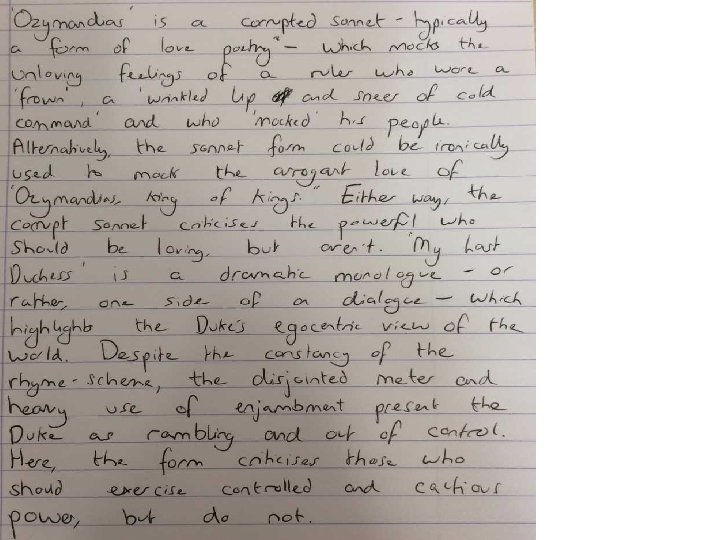 'Ozymandias' is a corrupted sonnet - typically
a form of love poetry - which mocks the
unloving feelings of a ruler who wore a
'frown', a 'wrinkled lip and sneer of cold
command' and who 'mocked' his people.
Alternatively, the sonnet form could be ironically
used to mock the arrogant love of
'Ozymandias, king of kings." Either way, the
corrupt sonnet criticises the powerful who
should be loving, but aren't. 'My Last
Duchess' is a dramatic monologue - or
rather, one side of a dialogue - which
highlights the Duke's egocentric view of the
world. Despite the constancy of the
rhyme-scheme, the disjointed meter and
heavy use of enjambment present the
Duke as rambling and out of control.
Here, the form criticises those who
should exercise controlled and cautious
power, but do not.